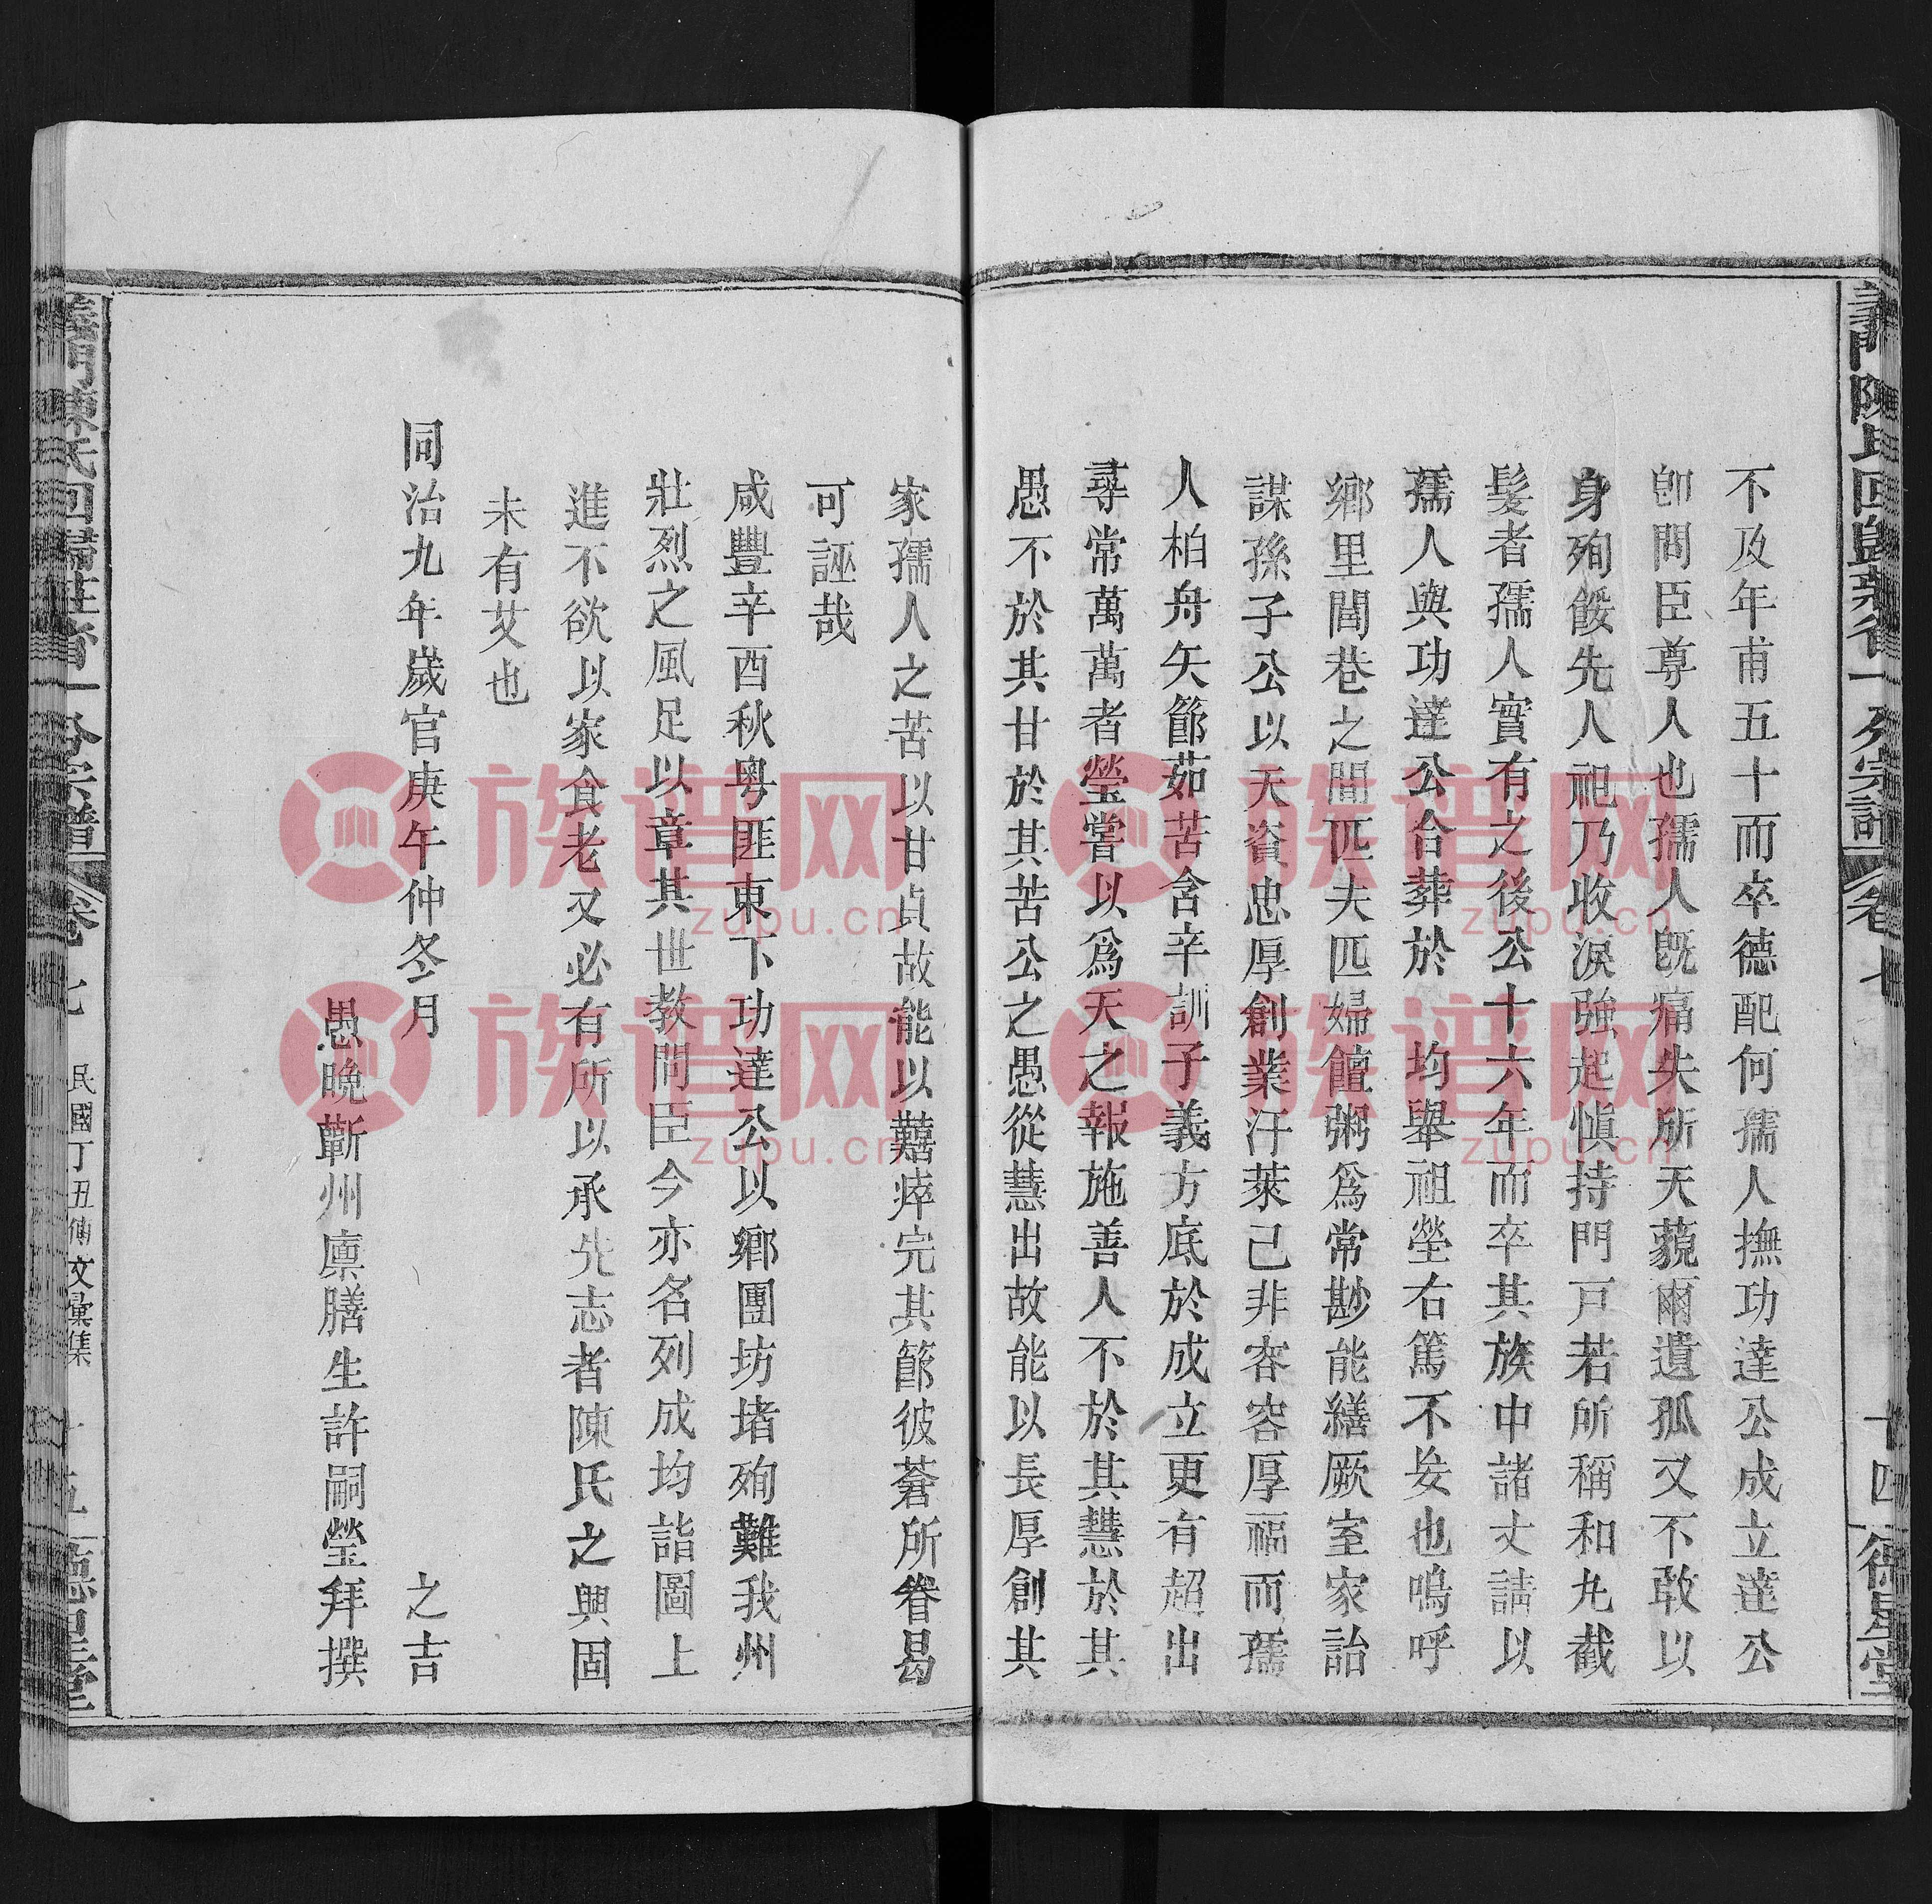 義門陳氏回歸莊省一公宗譜 卷七 十四 德星堂
不及年甫五十而卒德配何孺人撫功達公成立達公
卽問臣尊人也孺人旣痛失所天藐爾遺孤又不敢以
身殉餒先人祀乃收淚强起愼持門戸若所稱和丸截
髮者孺人實有之後公十六年而卒其族中諸丈請以
孺人與功達公合葬於 均舉祖塋右篤不妄也嗚呼
鄉里閭巷之間匹夫匹婦饘粥爲常尠能繕厥室家詒
謀孫子公以天資忠厚創業汙萊己非容容厚福而孺
人柏舟矢節茹苦含辛訓子義方底於成立更有超出
尋常萬萬者瑩嘗以爲天之報施善人不於其慧於其
愚不於其甘於其苦公之愚從慧出故能以長厚創其
家孺人之苦以甘貞故能以囏瘁完其節彼蒼所眷曷
可誣哉
咸豐辛酉秋粤匪東下功達公以鄉團坊堵殉難我州
壯烈之風足以章其世教問臣今亦名列成均詣圖上
進不欲以家食老又必有所以承先志者陳氏之興固
未有艾也
同治九年歲官庚午仲冬月 之吉
愚晚蘄州廩膳生許嗣瑩拜撰
義門陳氏回歸莊省一公宗譜 卷七 民國丁丑傳文彙集 十五 德星堂
族谱网
zupu.cn
族谱网
zupu.cn
族谱网
zupu.cn
族谱网
zupu.cn